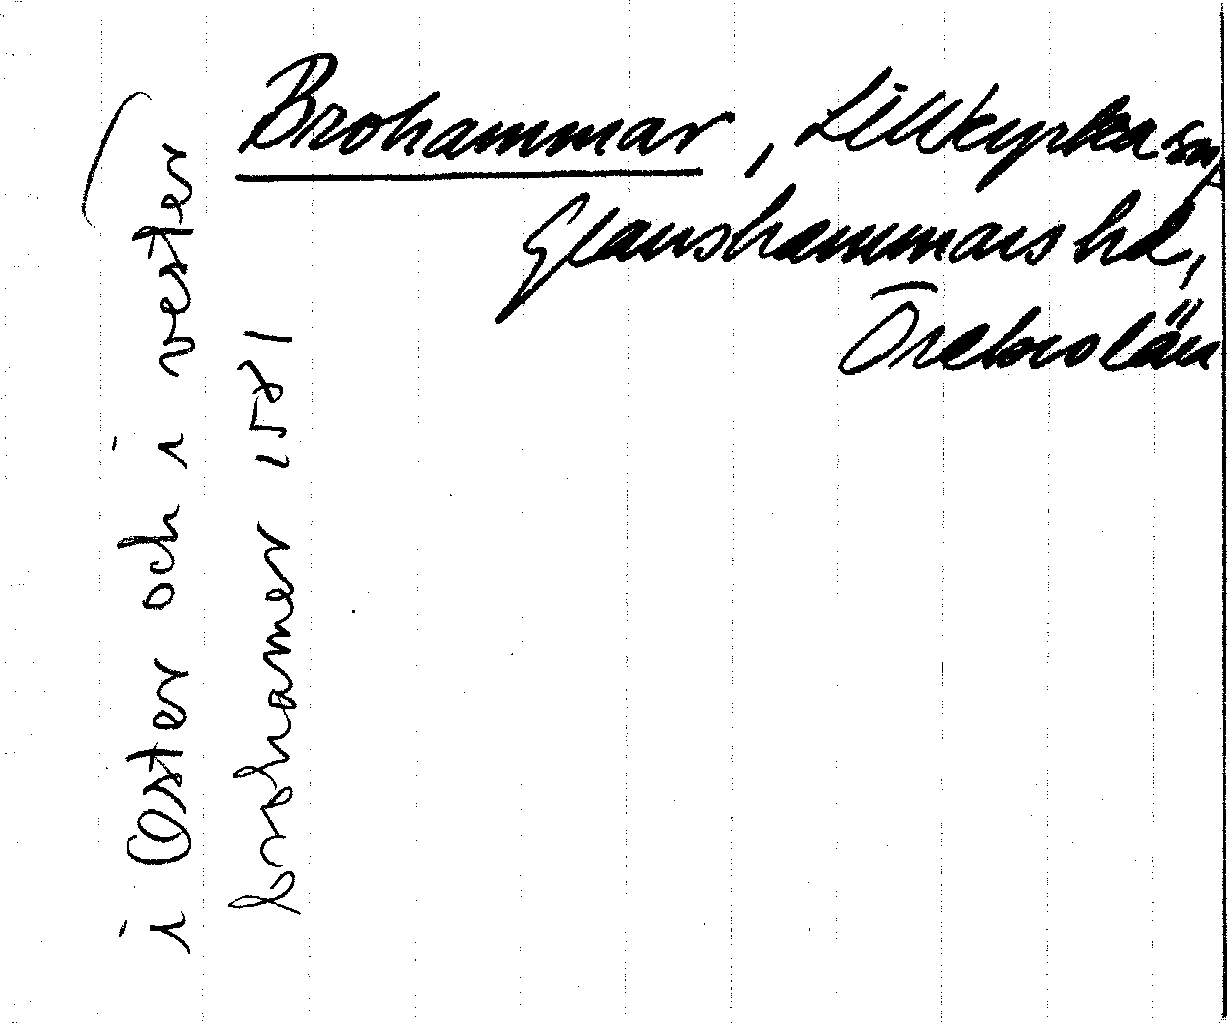 Brohammar, Lillkyrka sn,
Glanshammars hd,
Örebro län
i Œster och i vester
brohamer 1581